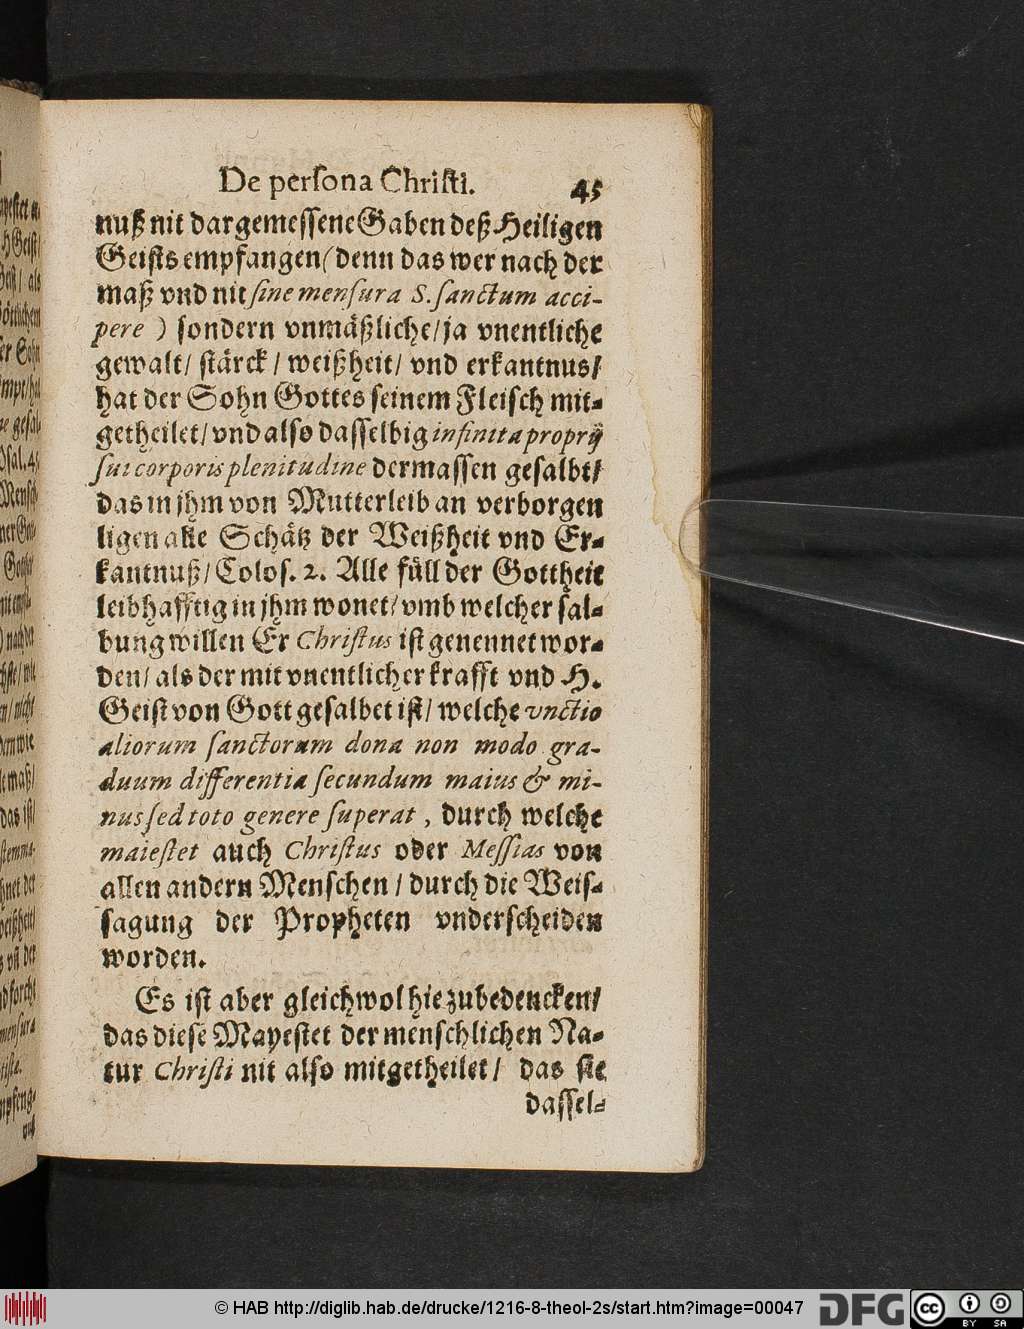 De persona Christi. 45
nuß nit dargemessene Gaben deß Heiligen
Geists empfangen (denn das wer nach der
maß vnd nit sine mensura S. sanctum acci-
pere) sondern vnmäßliche/ ja vnentliche
gewalt/ stärck/ weißheit/ vnd erkantnus/
hat der Sohn Gottes seinem Fleisch mit-
getheilet/ vnd also dasselbig infinita proprij
sui corporis plenitudine dermassen gesalbt/
das in jhm von Mutterleib an verborgen
ligen alle Schätz der Weißheit vnd Er-
kantnuß/ Colos. 2. Alle füll der Gottheit
leibhafftig in jhm wonet/ vmb welcher sal-
bung willen Er Christus ist genennet wor-
den/ als der mit vnentlicher krafft vnd H.
Geist von Gott gesalbet ist/ welche vnctio
aliorum sanctorum dona non modo gra-
duum differentia secundum maius & mi-
nus sed toto genere superat, durch welche
maiestet auch Christus oder Messias von
allen andern Menschen/ durch die Weis-
sagung der Propheten vnderscheiden
worden.
Es ist aber gleichwol hie zubedencken/
das diese Mayestet der menschlichen Na-
tur Christi nit also mitgetheilet/ das sie
dassel-
© HAB http://diglib.hab.de/drucke/1216-8-theol-2s/start.htm?image=00047
DFG
cc BY SA